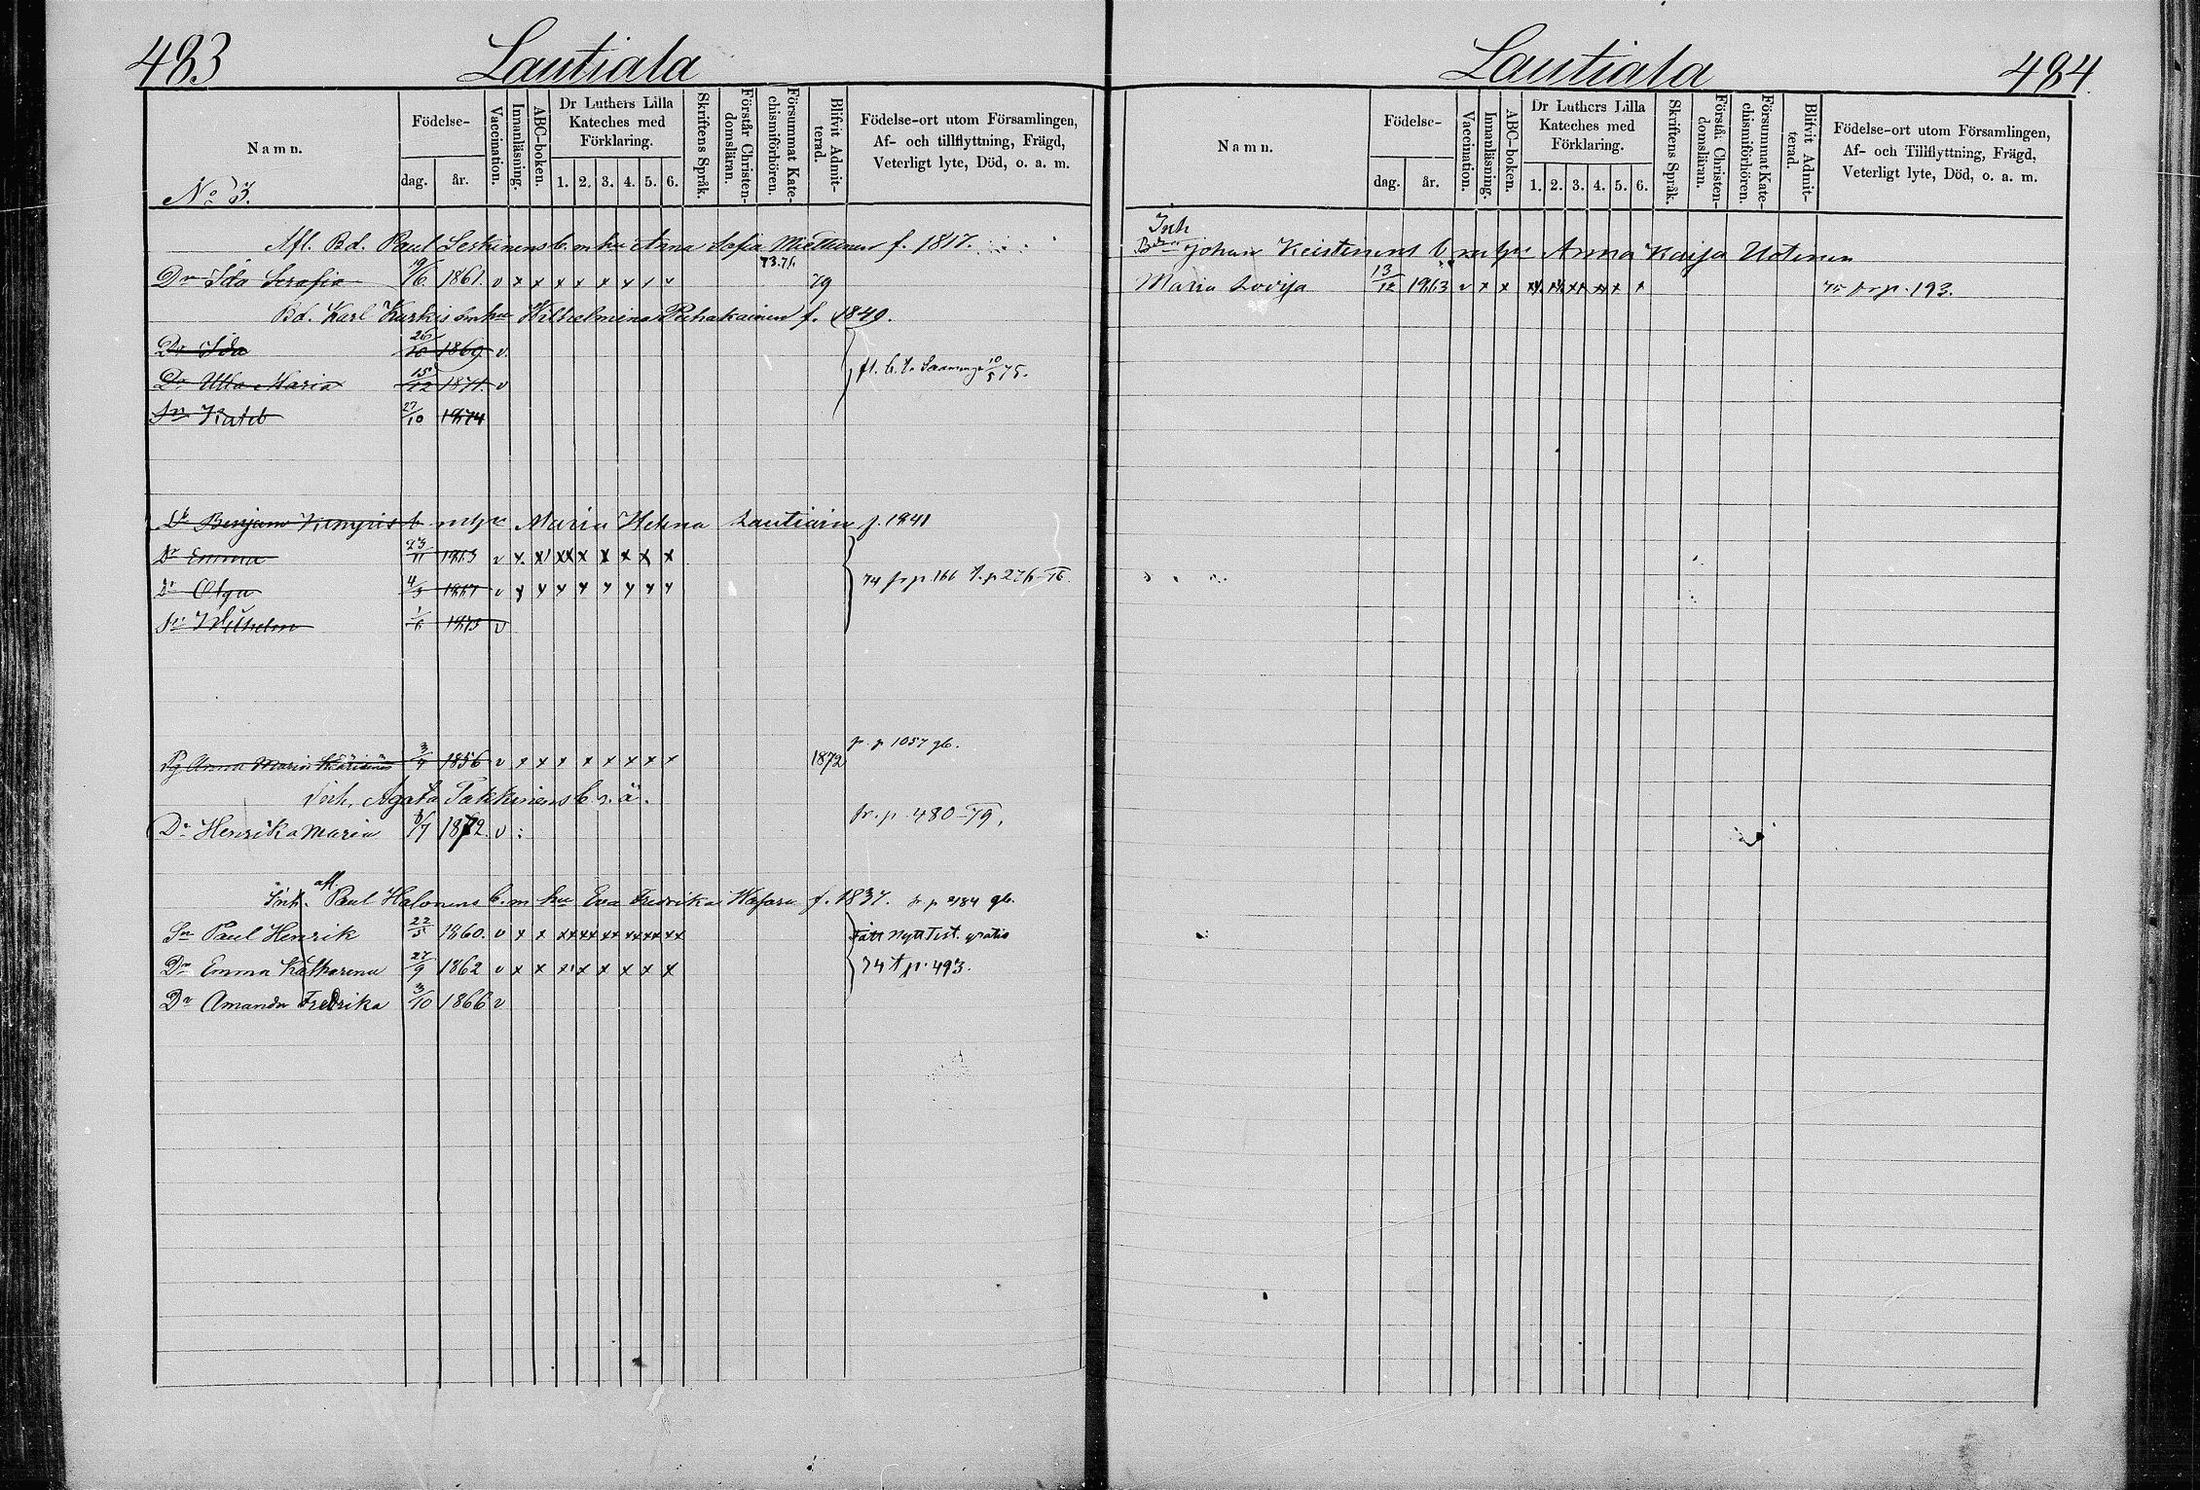 483
Lautiala
Namn.
Födelse-
dag.
år.
Vaccination.
Innanläsning.
ABC-boken.
Dr Luthers Lilla
Kateches med
Förklaring.
1. 2. 3. 4. 5. 6.
Skriftens Språk.
Förstår Christen-
domsläran.
Försummat Kate-
chismiförhören.
Blifvit Admit-
terad.
Födelse-ort utom Församlingen,
Af- och tillflyttning, Frägd,
Veterligt lyte, Död, o. a. m.
No 3.
Afl. Bd. Paul b. m hu Anna Sofia Miettinen f. 1817.
73.76.
Dr Ida Serafia 19/6 1861. v x x x x x x x x 79
Bd. Karl b m hu Wilhelmina f. 1849.
Dr Ida 26/10 1869 v.
Dr Ulla Maria 15/12 1871. v
fl. b. t. 10/5 75.
Sn 27/10 1874
Benjam b. m hu Maria Helena Lautiain f. 1841
Dr Emma 23/11 v x x xx x x x x x
Dr Olga v x x x x x x x x
74 fr p 166 t. p 276-76.
Sn Wilhelm v
fr. p 1057 gb.
Pg Anna Maria 1856 v x x x x x x x x 1872
Inh. Agata Takkinens b. o. ä.
fr. p. 480-79.
Dr Henrika Maria 1872. v
afl.
Inh. Paul Halonens b. m hu Eva Fredrika f. 1837. fr p gb.
Sn Paul Henrik 22/5 1860. v x x xx xx xx xx xx xx
Fått Nytt Test. gratis
Dr Emma Katharina 27/9 1862 v x x x x x x x x
74 t p. 493.
Dr Amanda Fredrika 3/10 1866 v
Lautiala
484.
Namn.
Födelse-
dag.
år.
Vaccination.
Innanläsning.
ABC-boken.
Dr Luthers Lilla
Kateches med
Förklaring.
1. 2. 3. 4. 5. 6.
Skriftens Språk.
Förstår Christen-
domsläran.
Försummat Kate-
chismiförhören.
Blifvit Admit-
terad.
Födelse-ort utom Församlingen,
Af- och Tillflyttning, Frägd,
Veterligt lyte, Död, o. a. m.
Inh
Johan b m hu Anna Kaisa
Maria Lovisa 13/12 1863 v x x xx xx xx xx x x 75 fr p. 193.